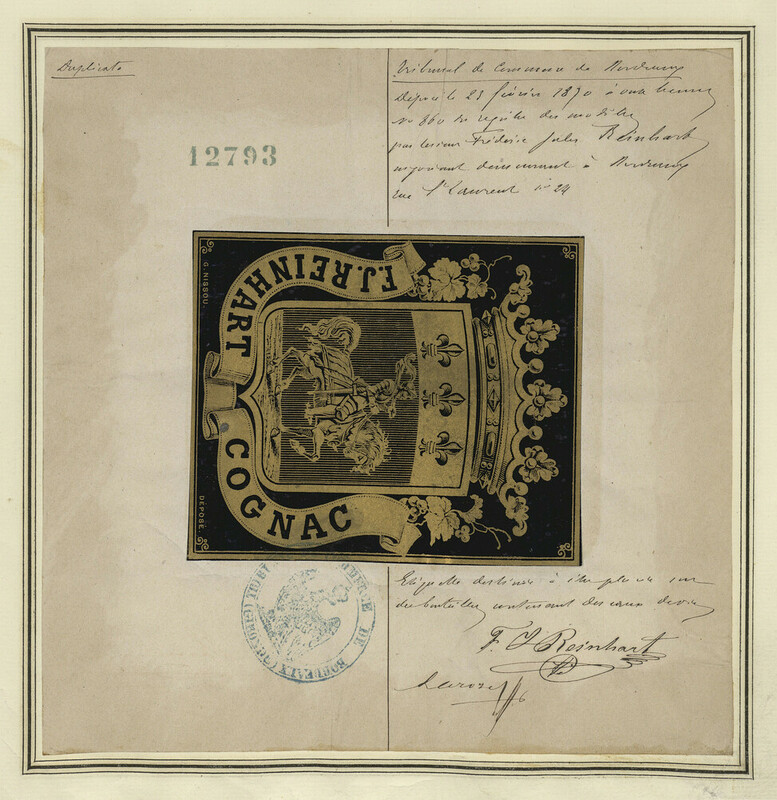 Duplicata
12793
Tribunal de Commerce de Bordeaux
Déposé le 23 février 1870 à onze heures
No 860 du registre des modèles
par le sieur Frédéric Jules Reinhart
négociant demeurant à Bordeaux
rue St Laurent no 24
F.J. REINHART
COGNAC
G. NISSOU.
DÉPOSÉ.
Etiquette destinée à être placée sur
des bouteilles contenant des eaux de vie
F. J Reinhart
DE
BORDEAUX (GIRONDE)